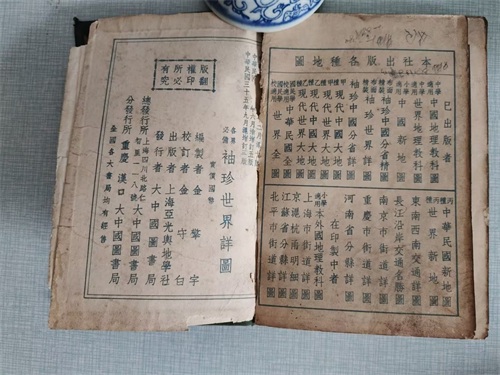 本社出版各種地圖
已出版者
中國地理教科圖
世界地理教科圖
中國新地圖
袖珍中國分省精圖
袖珍世界詳圖
袖珍中國分省詳圖
現代中國大地圖
現代世界大地圖
現代中國大地圖
現代世界大地圖
中華民國全圖
中華民國新地圖
世界新地圖
東南西南交通詳圖
長江沿岸交通名勝圖
南京市街道詳圖
重慶市街道詳圖
河南省分縣詳圖
在印製中者
小學適用本外國地理教科圖
上海市街道詳圖
京滬杭明細圖
江蘇省分縣詳圖
北平市街道詳圖
版權所有
翻印必究
中華民國三十五年九月
袖珍世界詳圖
編製者 金擎宇
校訂者 金守白
出版者 上海亞光輿地學社
發行者 大中國圖書局
總發行所 上海四川北路仁智里一一八號 大中國圖書局
分發行所 重慶 漢口 大中國圖書局
全國各大書局均有經售